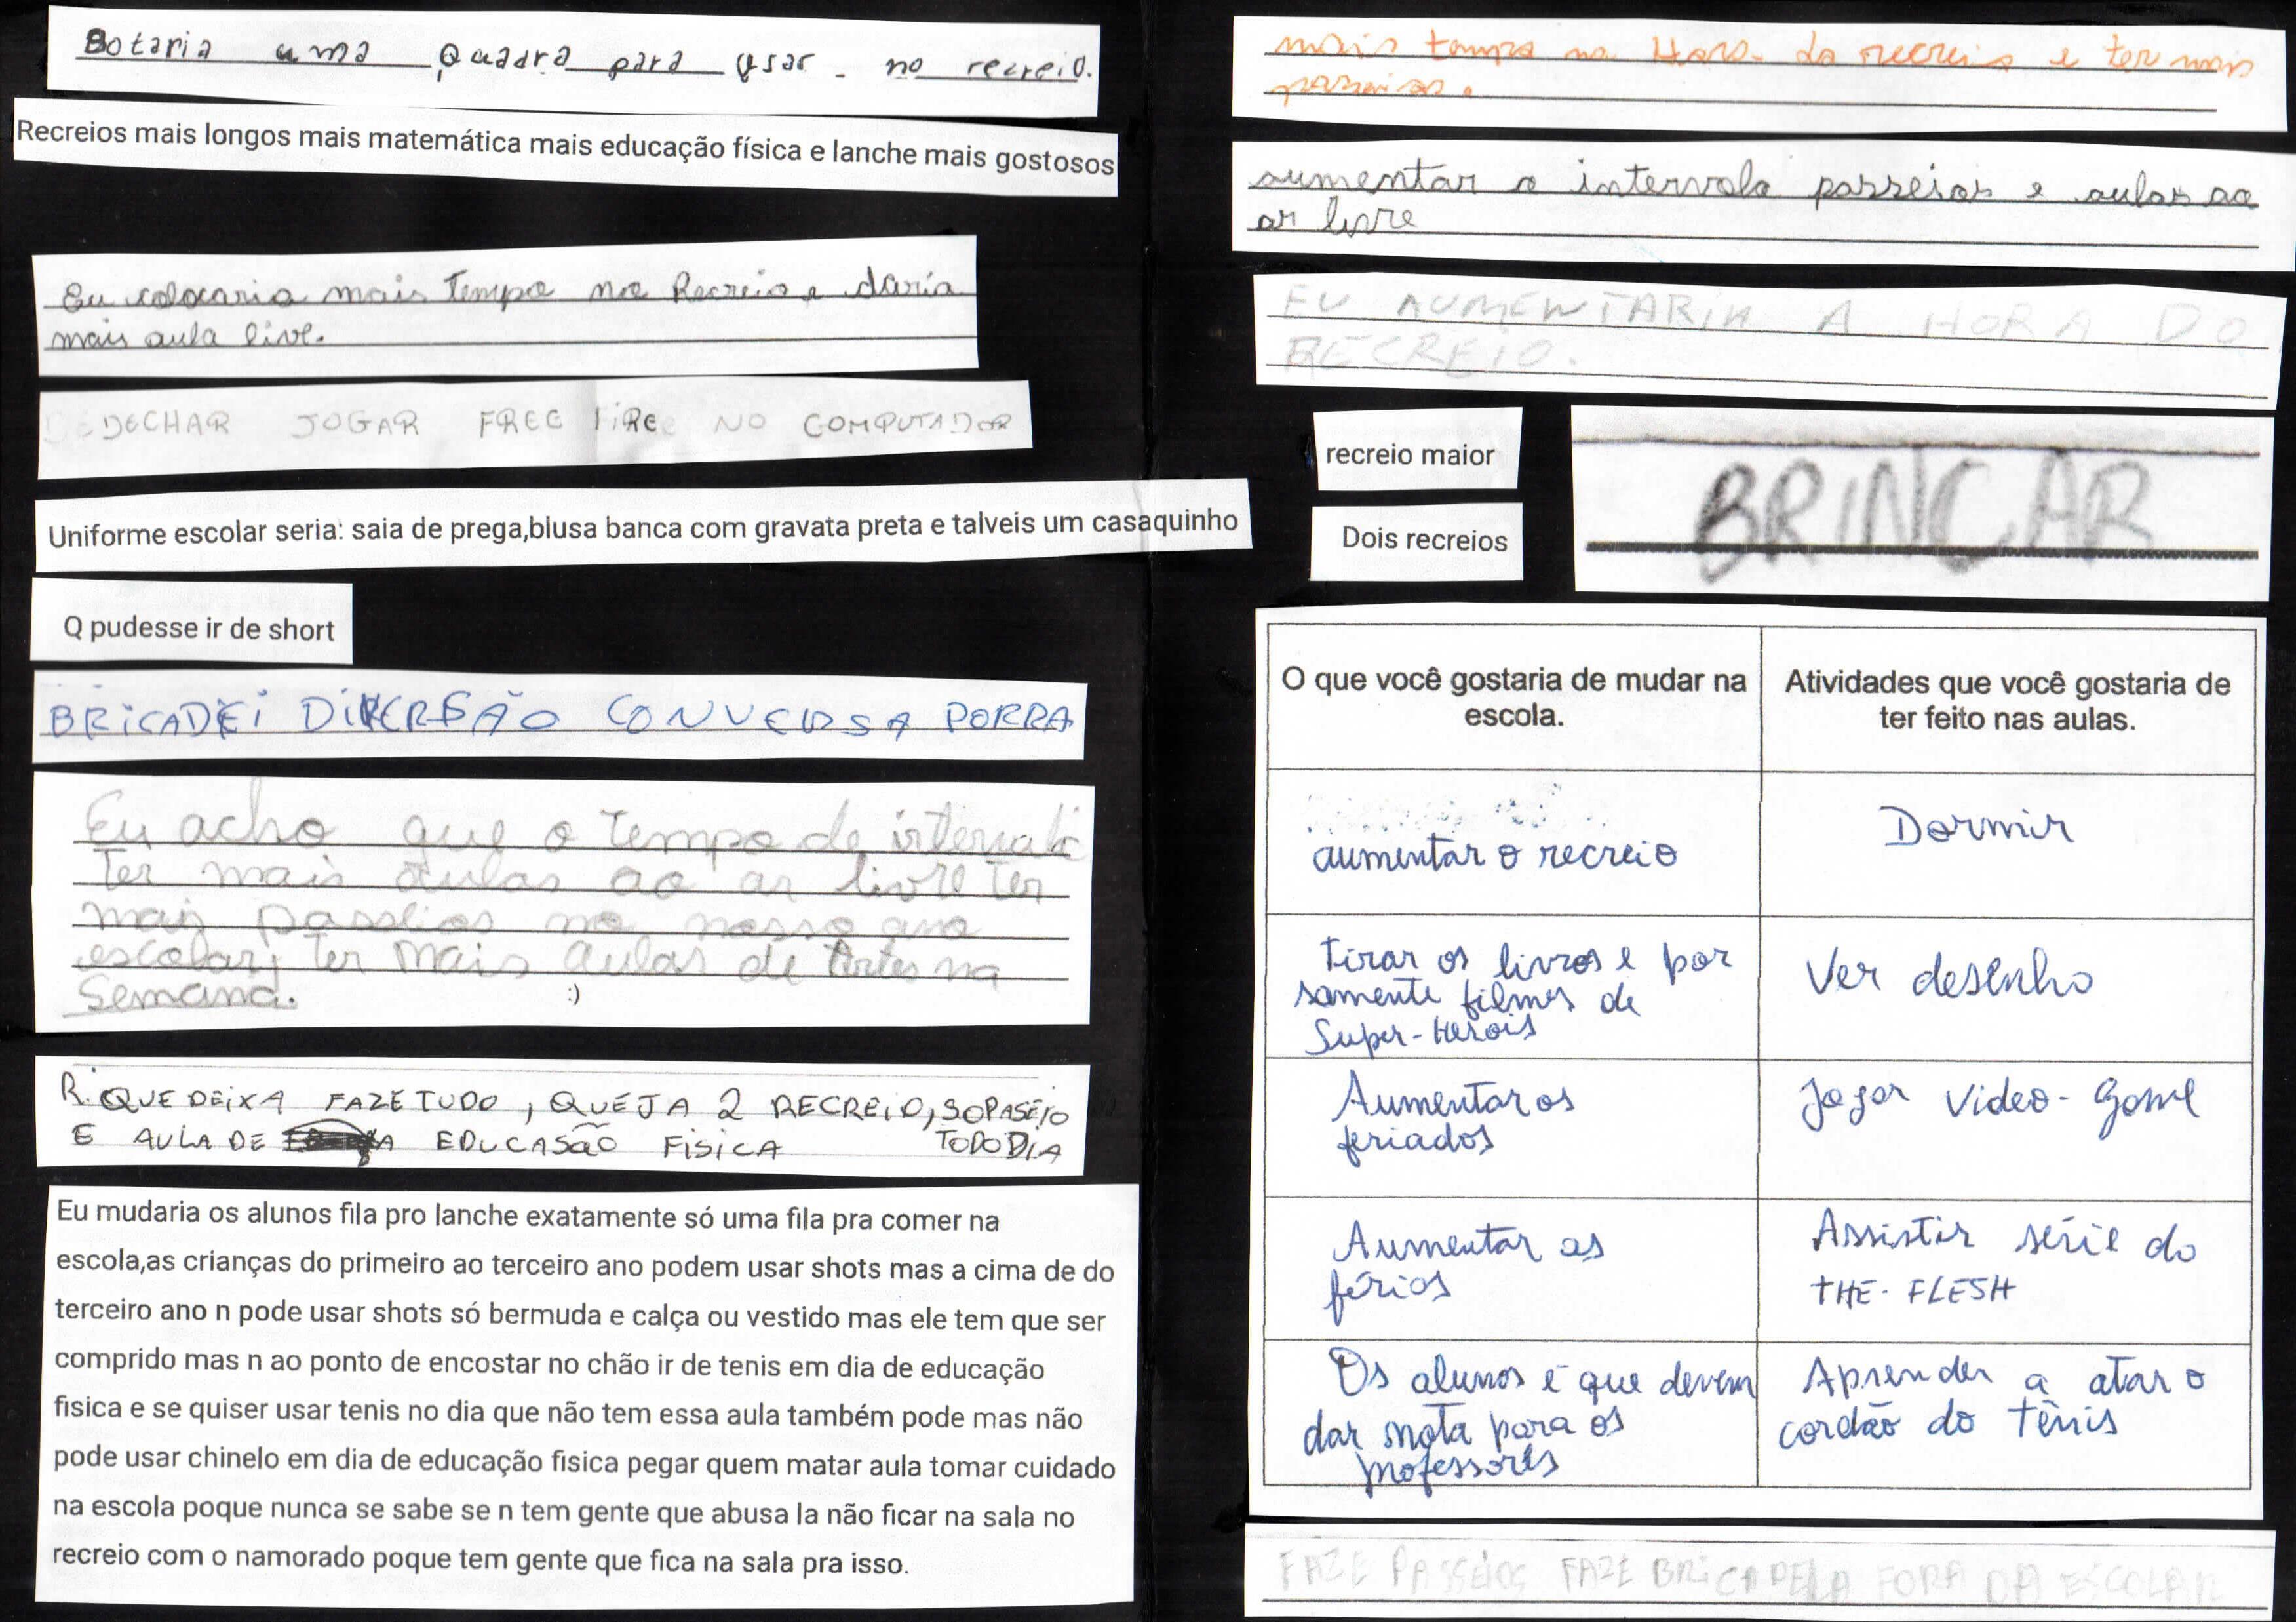 Botaria uma quadra para usar no recreio.
Recreios mais longos mais matemática mais educação física e lanche mais gostosos
Eu colocaria mais tempo no Recreio e daria
mais aula livre.
DECHAR JOGAR FREE FIRE NO COMPUTADOR
Uniforme escolar seria: saia de prega,blusa banca com gravata preta e talveis um casaquinho
Q pudesse ir de short
BRICADEI DIVERSÃO CONVERSA PORRA
Eu acho que o tempo de intervalo
ter mais aulas ao ar livre ter
mais passeios no nosso ano
escolar, ter mais aulas de Artes na
semana. :)
R. QUE DEIXA FAZE TUDO, QUEJA 2 RECREIO, SO PASEIO
E AULA DE EDUCASÃO FISICA TODO DIA
Eu mudaria os alunos fila pro lanche exatamente só uma fila pra comer na
escola,as crianças do primeiro ao terceiro ano podem usar shots mas a cima de do
terceiro ano n pode usar shots só bermuda e calça ou vestido mas ele tem que ser
comprido mas n ao ponto de encostar no chão ir de tenis em dia de educação
fisica e se quiser usar tenis no dia que não tem essa aula também pode mas não
pode usar chinelo em dia de educação fisica pegar quem matar aula tomar cuidado
na escola poque nunca se sabe se n tem gente que abusa la não ficar na sala no
recreio com o namorado poque tem gente que fica na sala pra isso.
mais tempo na Hora do recreio e ter mais
passeios.
aumentar o intervalo passeios e aulas ao
ar livre
EU AUMENTARIA A HORA DO
RECREIO.
recreio maior
Dois recreios
BRINCAR
O que você gostaria de mudar na
escola.
Atividades que você gostaria de
ter feito nas aulas.
aumentar o recreio
Dormir
tirar os livros e por
somente filmes de
Super-Herois
Ver desenho
Aumentar os
feriados
Jogar Video-Game
Aumentar as
férias
Assistir série do
THE-FLESH
Os alunos é que devem
dar nota para os
professores
Aprender a atar o
cordão do tênis
FAZE PASSEIOS FAZE BRICADELA FORA DA ESCOLAR